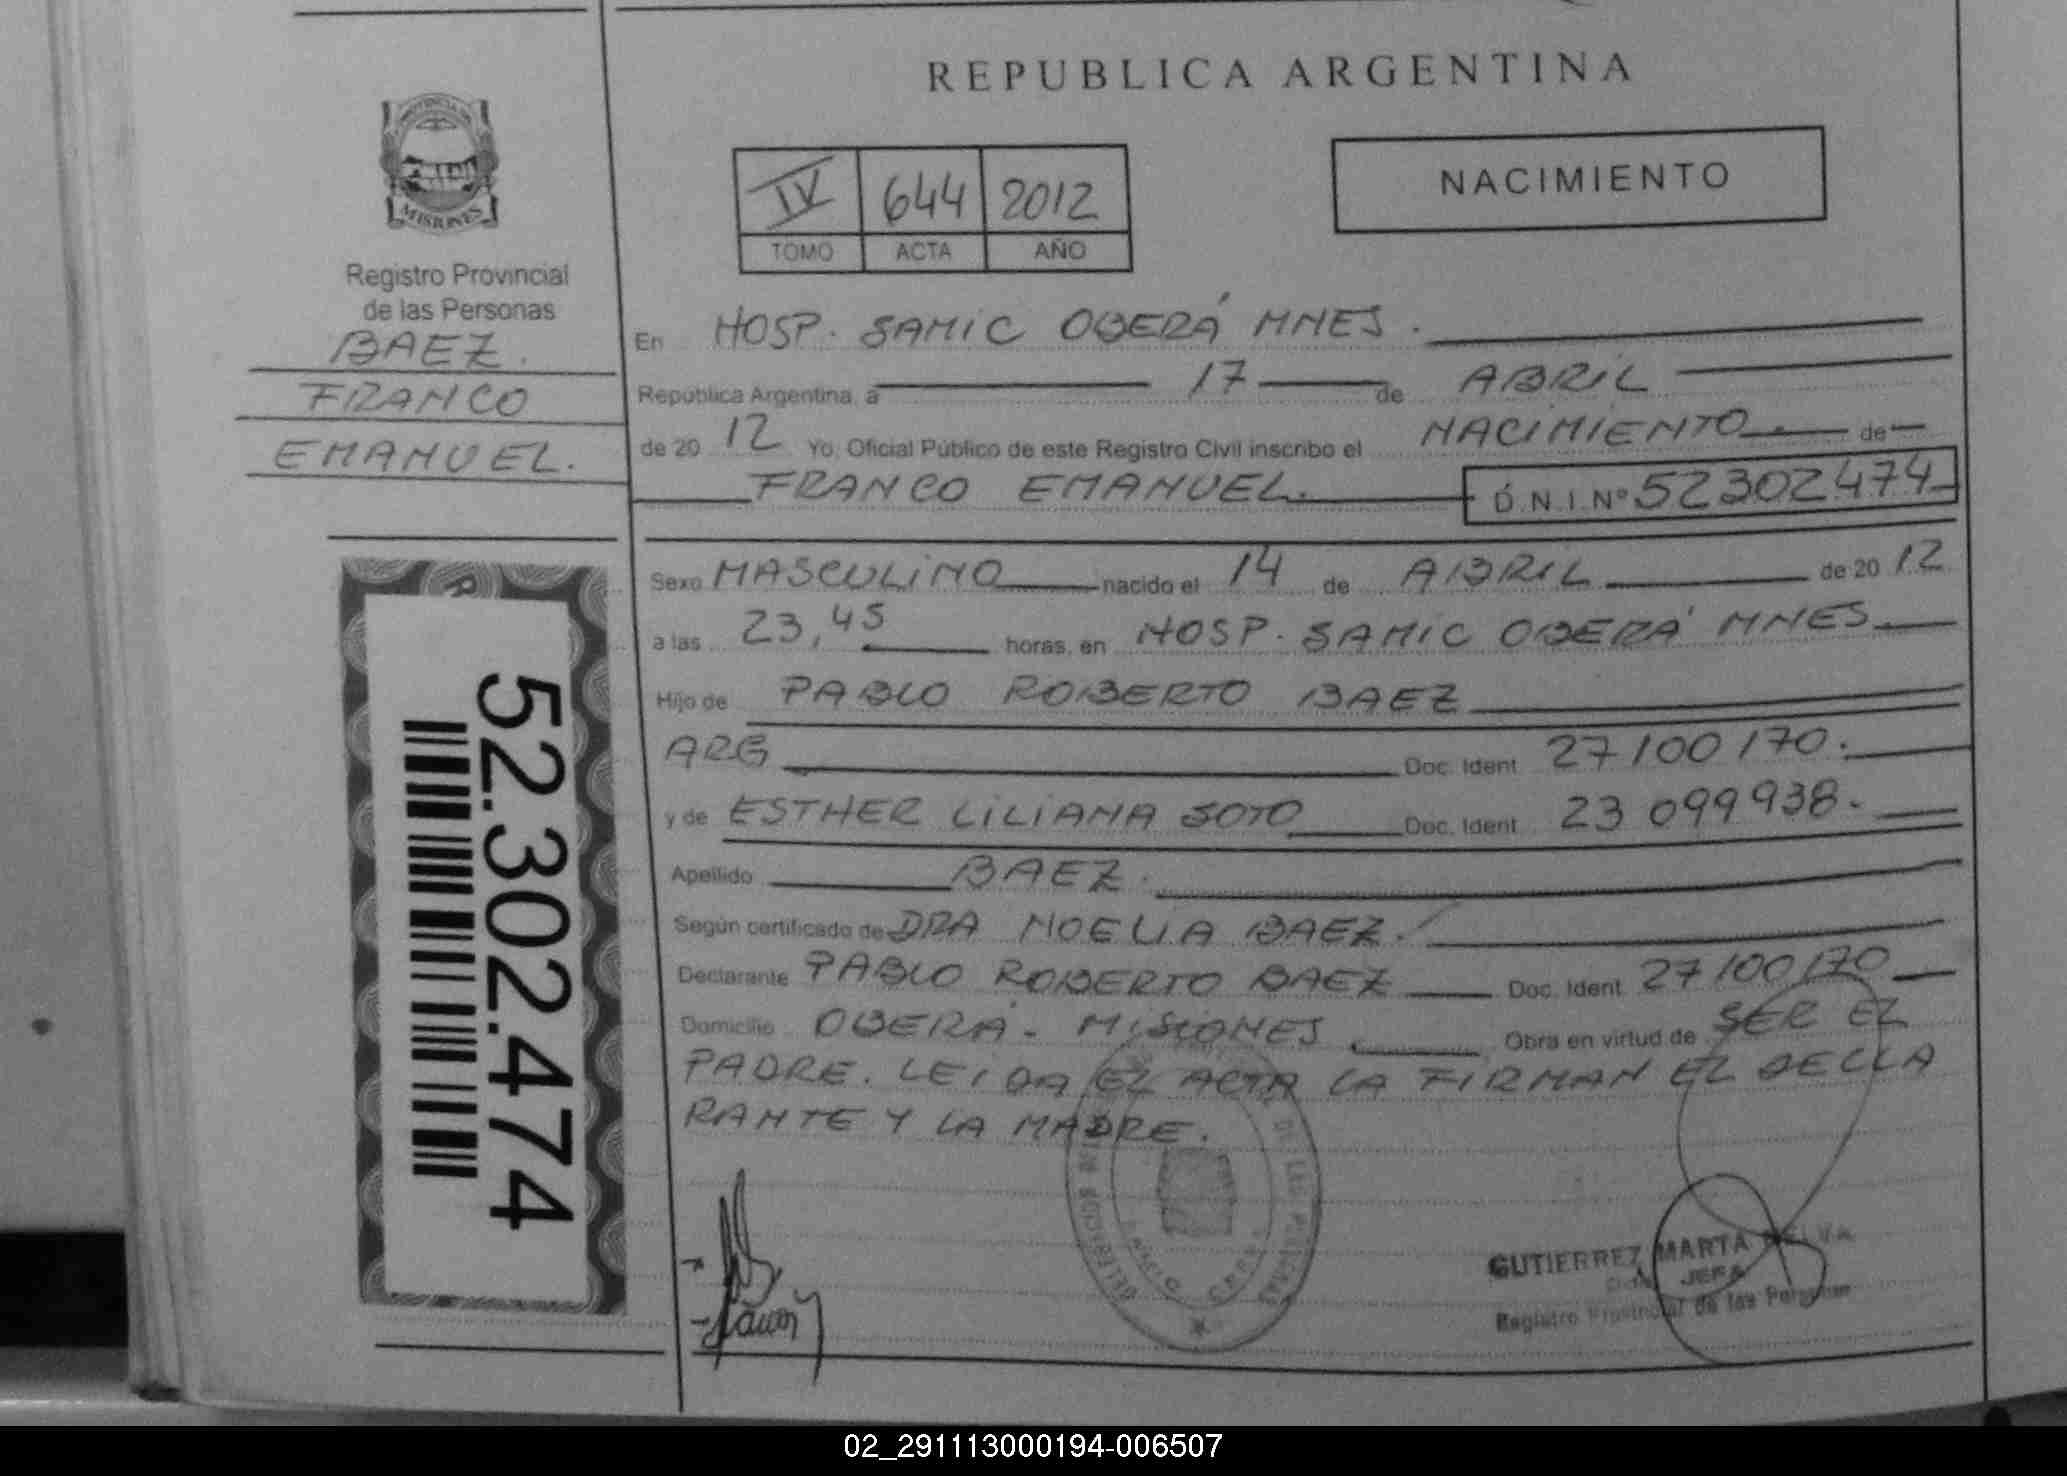 REPUBLICA ARGENTINA
PROVINCIA DE
MISIONES
Registro Provincial
de las Personas
BAEZ.
FRANCO
EMANUEL.
52.302.474
IV 644 2012
TOMO ACTA AÑO
NACIMIENTO
En HOSP. SAMIC OBERÁ MNES.
República Argentina, a 17 de ABRIL
de 20 12 Yo, Oficial Público de este Registro Civil inscribo el NACIMIENTO de
FRANCO EMANUEL. D.N.I.Nº 52302474
Sexo MASCULINO nacido el 14 de ABRIL de 20 12
a las 23,45 horas, en HOSP. SAMIC OBERÁ MNES
Hijo de PABLO ROBERTO BAEZ
ARG Doc. Ident 27100170.
y de ESTHER LILIANA SOTO Doc. Ident. 23 099938.
Apellido BAEZ.
Según certificado de DRA NOELIA BAEZ.
Declarante PABLO ROBERTO BAEZ Doc. Ident. 27100170
Domicilio OBERÁ - MISIONES Obra en virtud de SER EL
PADRE. LEIDA EL ACTA LA FIRMAN EL DECLA
RANTE Y LA MADRE.
DE LAS PERSONAS
GUTIERREZ MARTA
JEFA
Registro Provincial de las Personas
02_291113000194-006507